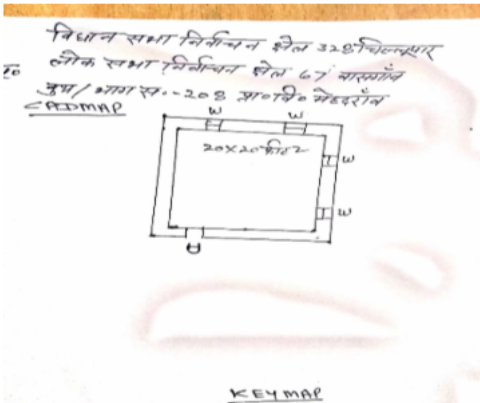 विधान सभा निर्वाचन क्षेत्र 328 चिल्लूपार
लोक सभा निर्वाचन क्षेत्र 67 बासगाँव
बुथ / भाग स.-208 प्रा० वि०
CADMAP
W W
20x20 फीट
W
W
D
KEY MAP